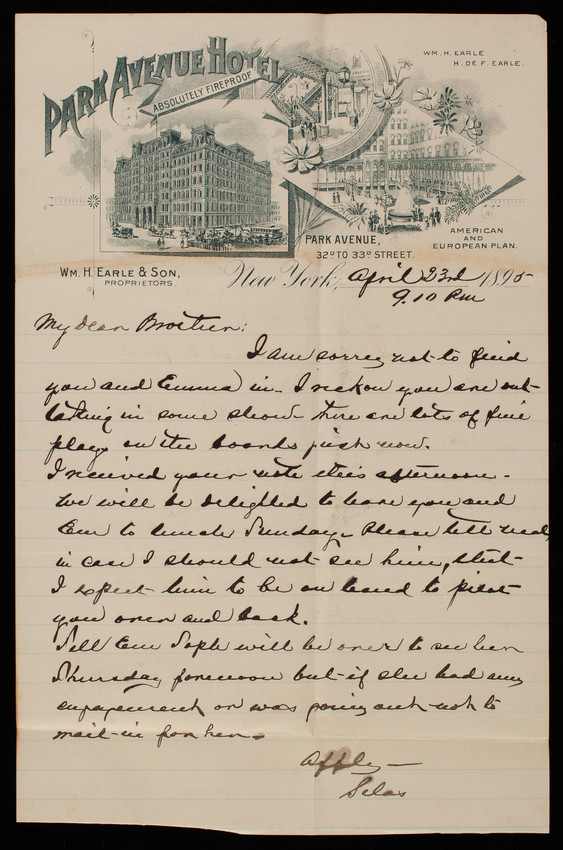 PARK AVENUE HOTEL
ABSOLUTELY FIREPROOF
WM. H. EARLE
H. DE F. EARLE.
PARK AVENUE,
32D TO 33D STREET.
AMERICAN
AND
EUROPEAN PLAN.
WM. H. EARLE & SON,
PROPRIETORS.
New York, April 23rd 1895
9.10 PM
My dear Brother:
I am sorry not to find
you and Emma in - I reckon you are out
taking in some show - there are lots of fine
plays on the boards just now.
I received your note this afternoon -
We will be delighted to have you and
Em to lunch Sunday - Please tell
in case I should not see him, that
I expect him to be on hand to pilot
you over and back.
Tell Em Soph will be over to see her
Thursday forenoon but if she had any
engagement or was going out not to
wait in for her.
Affly -
Silas